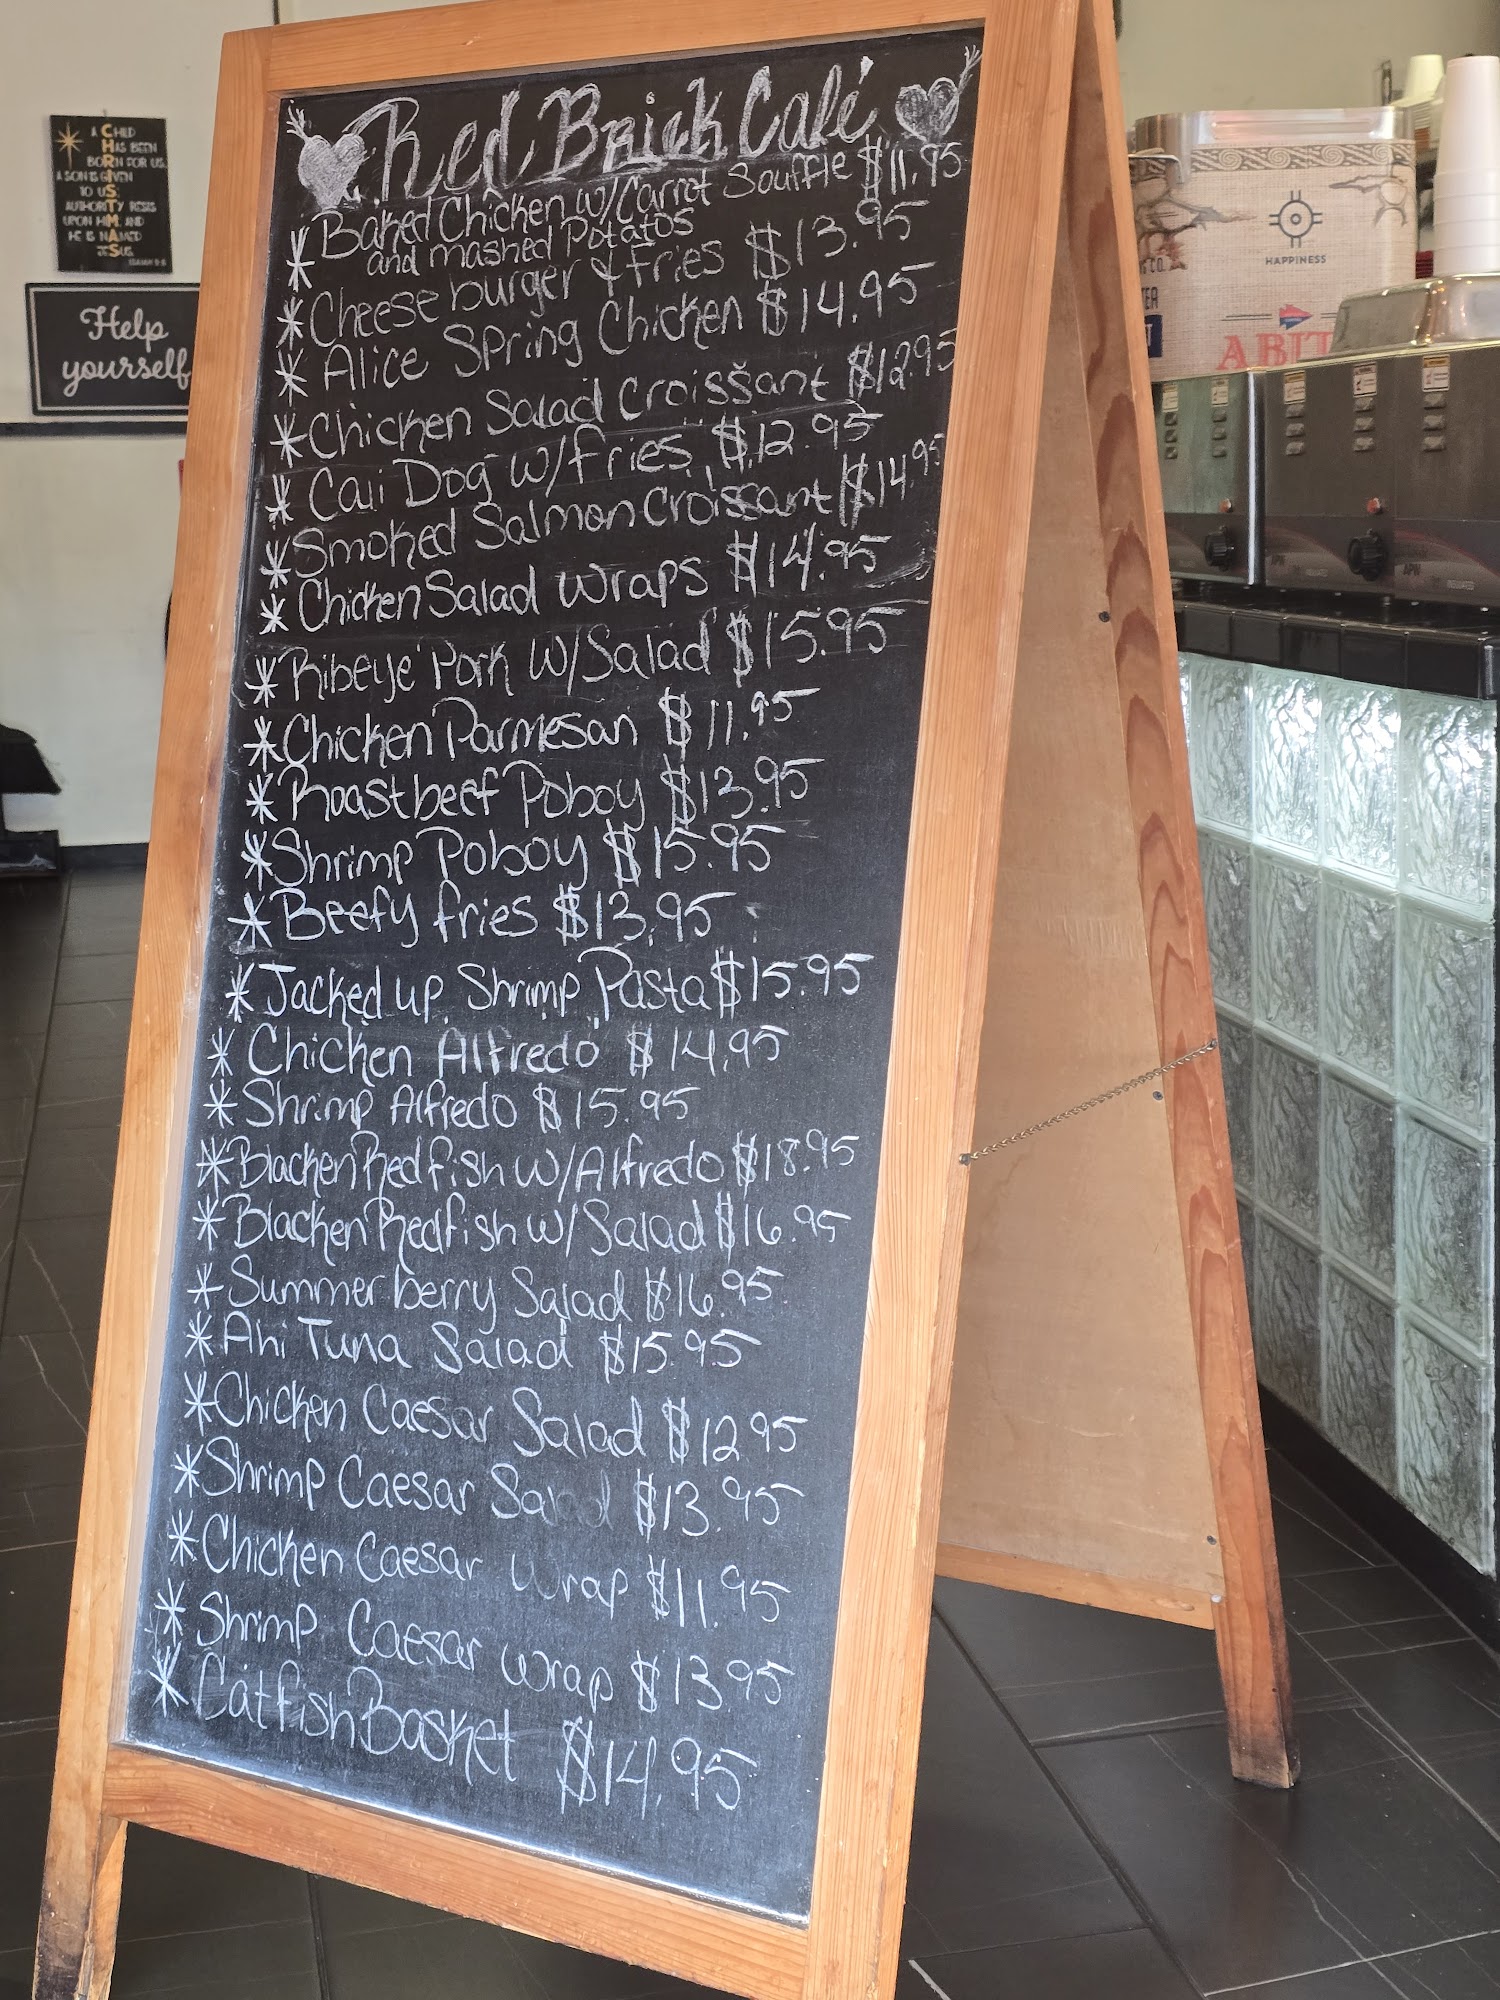 Red Brick Café
* Baked Chicken w/Carrot Souffle $11.95
and mashed Potatos
* Cheese burger & fries $13.95
* Alice Spring Chicken $14.95
* Chicken Salad Croissant $12.95
* Cali Dog w/fries $12.95
* Smoked Salmon Croissant $14.95
* Chicken Salad Wraps $14.95
* Ribeye Pork w/Salad $15.95
* Chicken Parmesan $11.95
* Roastbeef Poboy $13.95
* Shrimp Poboy $15.95
* Beefy fries $13.95
* Jacked up Shrimp Pasta $15.95
* Chicken Alfredo $14.95
* Shrimp Alfredo $15.95
* Blacken Redfish w/Alfredo $18.95
* Blacken Redfish w/Salad $16.95
* Summer berry Salad $16.95
* Ahi Tuna Salad $15.95
* Chicken Caesar Salad $12.95
* Shrimp Caesar Salad $13.95
* Chicken Caesar Wrap $11.95
* Shrimp Caesar Wrap $13.95
* Catfish Basket $14.95
A CHILD
HAS BEEN
BORN FOR US.
A SON IS GIVEN
TO US
AUTHORITY RESTS
UPON HIM AND
HE IS NAMED
JESUS.
ISAIAH 9:6
Help
yourself
HAPPINESS
CO.
ABIT